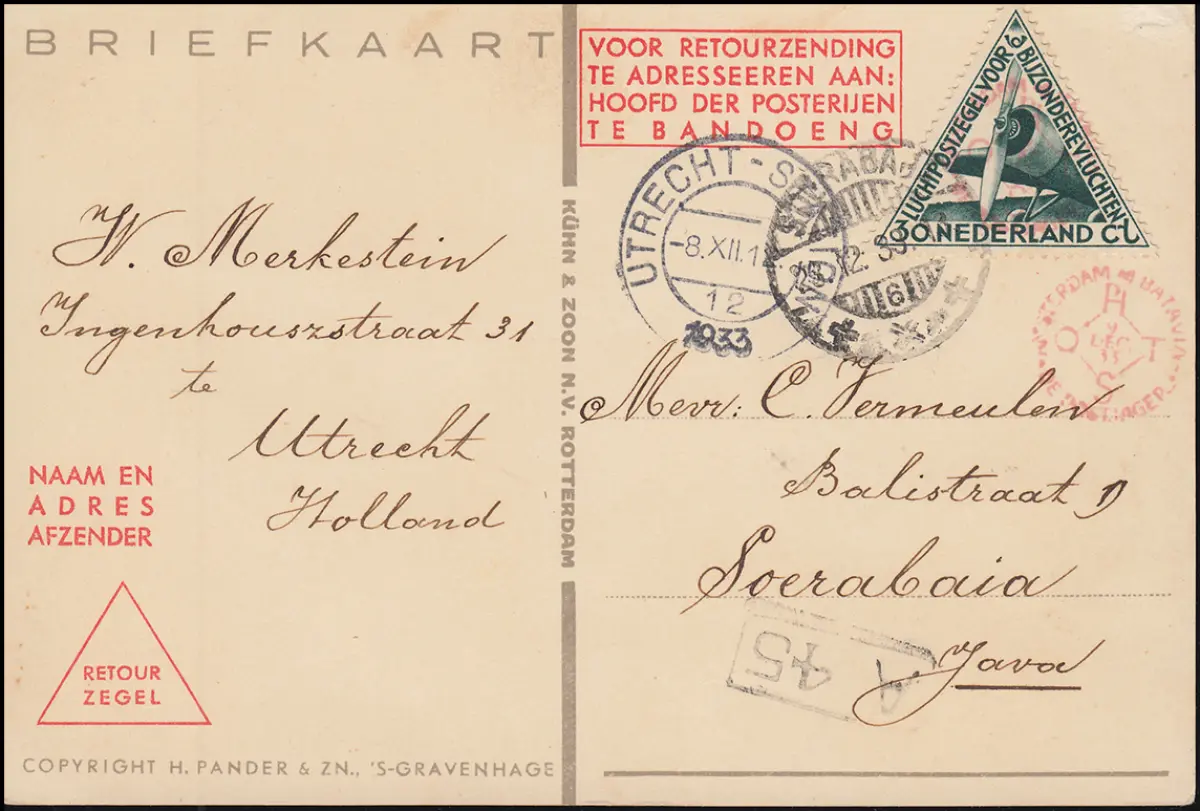 BRIEFKAART
W. Merkestein
Ingenhouszstraat 31
te
Utrecht
Holland
NAAM EN
ADRES
AFZENDER
RETOUR
ZEGEL
COPYRIGHT H. PANDER & ZN., 'S-GRAVENHAGE
KÜHN & ZOON N.V. ROTTERDAM
VOOR RETOURZENDING
TE ADRESSEEREN AAN:
HOOFD DER POSTERIJEN
TE BANDOENG
LUCHTPOSTZEGEL VOOR
BIJZONDERE VLUCHTEN
30 NEDERLAND CT
UTRECHT-
-8.XII.1
12
1933
6
AMSTERDAM BATAVIA
PH
O T
DEC
33
S
Mevr: C. Vermeulen
Balistraat
Soerabaia
Java
A
45